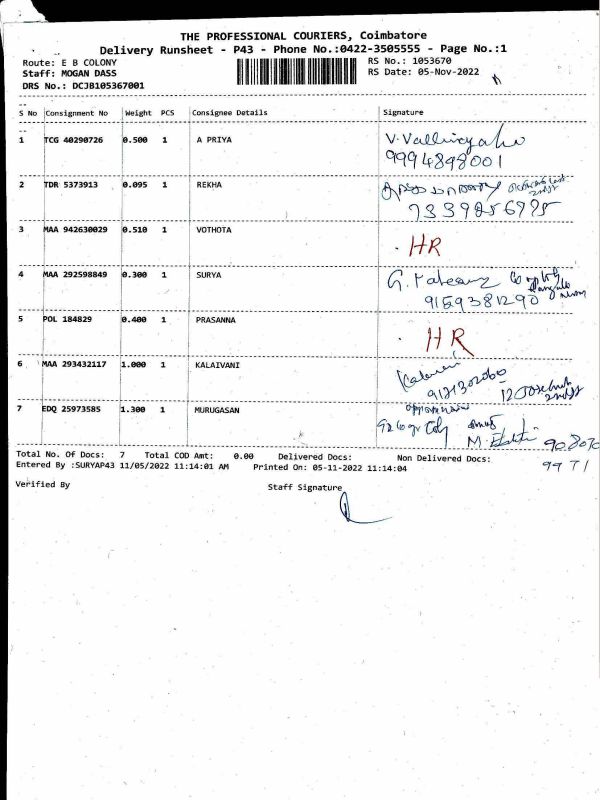 THE PROFESSIONAL COURIERS, Coimbatore
Delivery Runsheet - P43 - Phone No.:0422-3505555 - Page No.:1
Route: E B COLONY
Staff: MOGAN DASS
DRS No.: DCJB105367001
RS No.: 1053670
RS Date: 05-Nov-2022
S No Consignment No Weight PCS Consignee Details Signature
1 TCG 40290726 0.500 1 A PRIYA
9994898001
2 TDR 5373913 0.095 1 REKHA
3 MAA 942630029 0.510 1 VOTHOTA HR
4 MAA 292598849 0.300 1 SURYA
9159381290
5 POL 184829 0.400 1 PRASANNA HR
6 MAA 293432117 1.000 1 KALAIVANI
7 EDQ 25973585 1.300 1 MURUGASAN
Total No. Of Docs: 7 Total COD Amt: 0.00 Delivered Docs: Non Delivered Docs:
Entered By :SURYAP43 11/05/2022 11:14:01 AM Printed On: 05-11-2022 11:14:04
Verified By Staff Signature